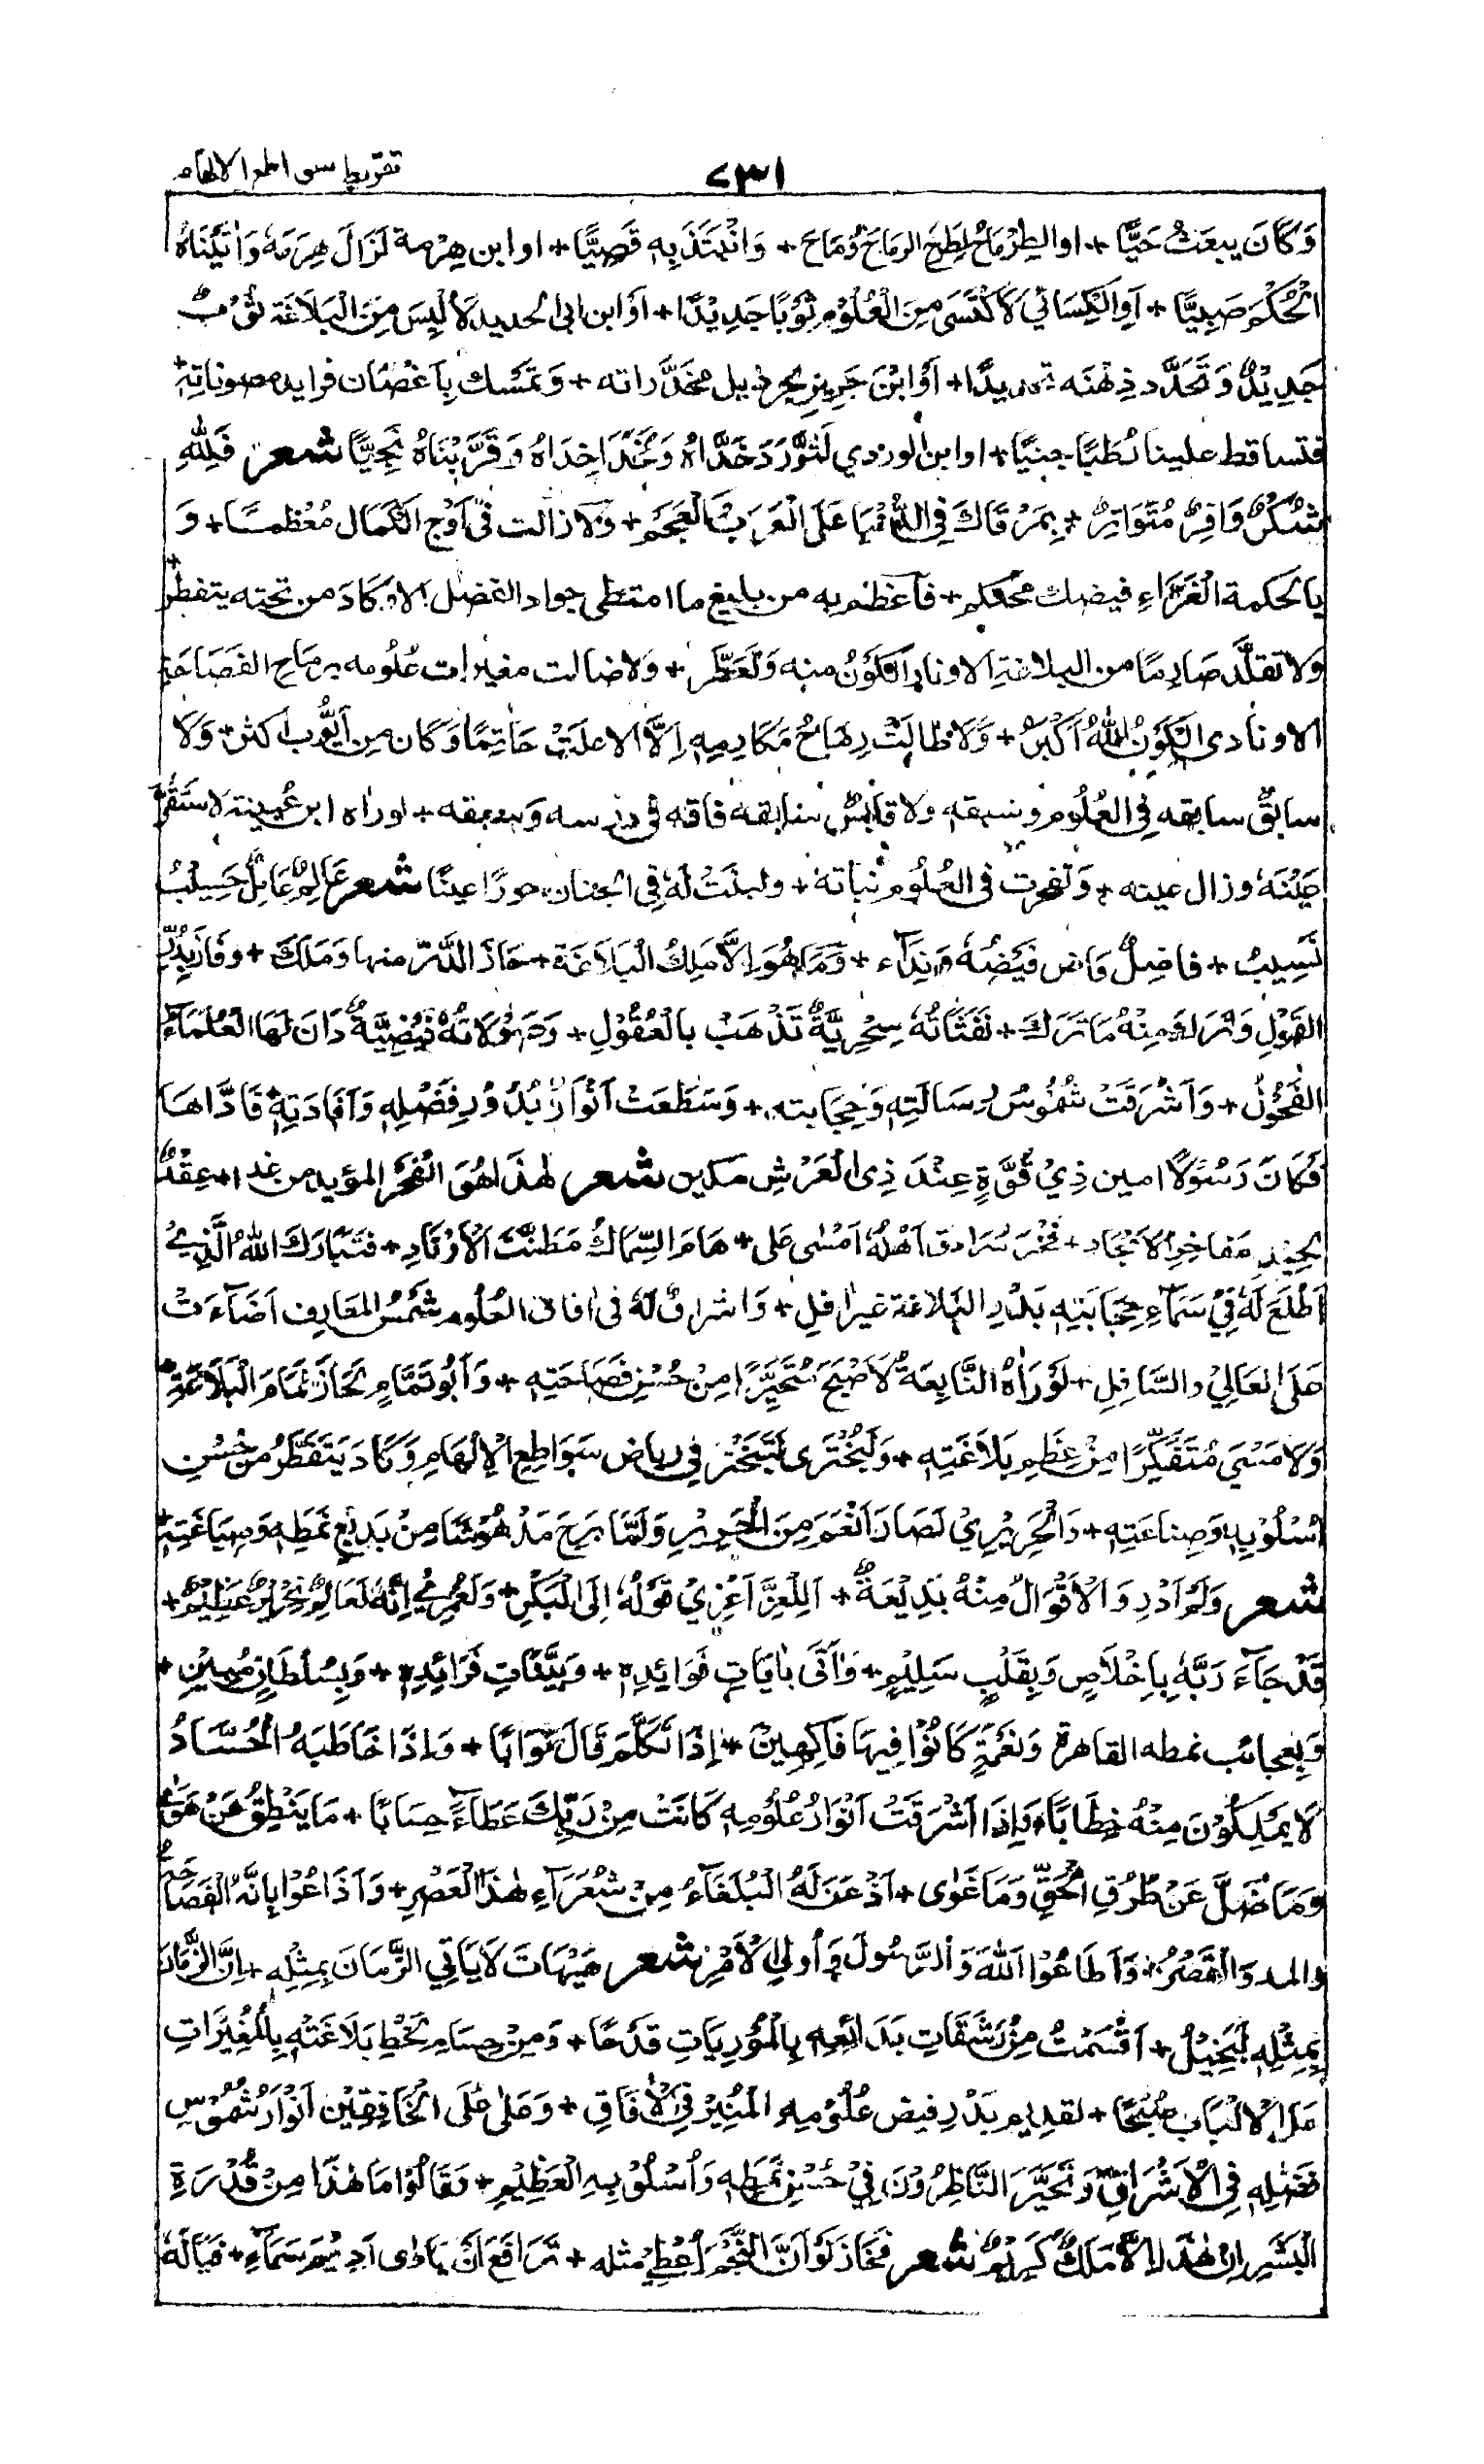 تقريظ سواطع الالهام
٧٣١
وَكَانَ يبعَثُ حَيًّا + او الطِرْمَاحُ لطَرَحَ الرماحَ وَمَاحَ + وَانْتَبَذَ بِهٖ قَصِيًّا + او ابن هِرْمة لَزَالَ هِرَمَهٗ وَاٰتَيْنَاهُ
الْحُكْمَ صَبِيًّا + اَوِ الْكِسَائي لَاكْتَسٰى مِنَ الْعُلُوْمِ ثَوْبًا جَدِيْدًا + اَوْ ابن ابى الحديد لَاُلْبِسَ مِنَ الْبَلَاغَة ثَوْبٌ
جَدِيْدٌ وَتَحَدَّد ذِهْنَه تحديدًا + اَوْ ابْنَ جَرِيْرٍ لجر ذيل مخدَّراته + وَتمَسَّك بِاَغْصَان فرايد مصوناتِهٖ +
فتساقط علينا رُطَبًا جنيًّا + او ابن الوردي لَتَوَّرَدَ خَدَّاهُ وَ وَقَرَّبْنَاهُ نَجِيًّا شعر فَلِلّٰهِ
شُكْرٌ وَافِرٌ مُتَوَاتِرٌ + بِمَرْقَاكَ فِى الدُّنْيَا عَلَى الْعَرَبِ الْعَجَمِ + وَلَا زالت فى اَوْج الْكَمَال مُعَظَّمًا + وَ
بالحكمة الْغَرَّاءِ فيضك محكم + فَاَعْظِم به من بليغ ما امتطى جواد الفضل الا وكَادَ من تحته يتفطر +
ولا تقلَّد صَارِمًا من البلاغةِ الا ونادٰى الْكَوْنُ منه وَتَعَطَّرَ + وَلَا صالت مغيرات عُلُومه برماح الفَصَاحَةِ
الا ونادى الْكَوْنُ اللّٰهُ اَكْبَرُ + وَلَا طَالَتْ رِمَاحُ مَكَارِمِهٖ اِلَّا الا علَتْ حَاتِمًا وَكَان مِن اَيُّوب اكثر + وَلَا
سابقٌ سابقه فِى العُلُوم وسبقه ولا قابسٌ سابقه فاقه فى درسه وَسبقه + لو راٰه ابن عُيينة لاستَقَرَّ
عَيْنَهٗ وزال عينه + وَتفجرت فى العُلُوم نباتهٗ + ولبنَتْ لَهٗ فِى الجنان حورًا عينًا شعر عَالِمٌ عَامِلٌ حَسِيْبٌ
نَسِيبٌ + فاضِلٌ فَاض فَيْضُهٗ وَنِدَآء + وَمَا هُوَ اِلَّا مَلِكُ الْبَلَاغَة + حَازَ الدُّرَّ منها وَمَلَكَ + وفَازَ بِدُرِّ
القَوْلِ وَتَرَكَ مِنْهُ مَا تَرَكَ + نَفَثَاتُهٗ سِحْرِيَّةٌ تَذْهَبُ بالْعُقُولِ + وَصَوْلَاتُهٗ فَيْضِيَّةٌ دَانَ لَهَا الْعُلَمَاءُ
الفُحُوْلُ + وَاَشْرَقَتْ شُمُوسُ رِسَالَتِهٖ وَحِجَابته + وَسَطَعَتْ اَنْوَارُ بُدُوْرِ فَضْلِهٖ وَاِفَادَتِهٖ فَادَّاهَا
فَكَانَ رَسُوْلًا امين ذِيْ قُوَّةٍ عِنْدَ ذِى الْعَرْشِ مكين شعر هٰذَا هُوَ الْفَخْرُ المؤيد من غدا + عِقْدٌ
بجِيْدِ مَفَاخِرِ الْاَمْجَادِ + فَخْرٌ سُرَادق اَهْلُهٗ اَمْسٰى عَلٰى + هَامَ السِّمَاكُ مَطَنَّبَ الْاَوْتَادِ + فَتَبَارَكَ اللّٰهُ الَّذِيْ
اَطْلَعَ لَهٗ فِىْ سَمَآءِ حِجَابَتِهٖ بَدْرِ الْبَلَاغة غير اٰفلٍ + وَاشراق لَهٗ فى اٰفاق العُلُومِ شَمْسُ المعَارِفِ اَضَآءَتْ
عَلَى العَالِيْ والسَّافِلِ + لَوْ رَاٰهُ النَّابِغَةُ لَاَصْبَحَ مُتَحَيِّرًا مِنْ حُسْنِ فَصَاحَتِهٖ + وَاَبُو تَمَّامٍ لحَازَ تَمَامَ الْبَلَاغَةِ +
وَلَاَمْسٰى مُتَفَكِّرًا مِنْ عِظَمِ بَلَاغَتِهٖ + وَلبُحْتَرٰى لَتَبَخْتَرَ فِي رياض سَوَاطِعِ الْاِلْهَامِ وَكَادَ يَتَفَطَّرُ مِنْ حُسْنِ
اُسْلُوْبِهٖ وَصِنَاعَتِهٖ + وَالْحَرِيْرِيْ لَصَارَ اَنْعَمَ مِنَ الْحَرِيْرِ وَلَمَّا بَرِحَ مَدْهُوْشًا مِنْ بَدِيْعِ نَمَطِهٖ وَصِيَاغَتِهٖ +
شعر وَلَمْ اَدْرِ وَالْاَقْوَالُ مِنْهُ بَدِيْعَةٌ + اَلِلْعِزِّ اَعْزِيْ قَوْلَهٗ اِلَى الْبَكْرِ + وَلَعُمْرِيْ اِنَّهٗ لَعَالِمٌ نِحْرِيْرٌ عَظِيْمٌ +
قَدْ جَآءَ رَبَّهٗ بِاِخْلَاصٍ وَبِقَلْبٍ سَلِيْمٍ + وَاَتٰى بِاٰيَاتٍ فَوَائِدِهٖ + وَبَيِّنَاتٍ فَرَائِدِهٖ + وَبِسُلْطَانٍ مُبِيْنٍ +
وَبِعجائب نمطه القاهرة وَنَعْمَةٍ كَانُوْا فِيهَا فَاكِهِيْنَ + اِذَا تَكَلَّمَ قَالَ صَوَابًا + وَاِذَا خَاطَبَهُ الْحُسَّادُ
لَا يَمْلِكُوْنَ مِنْهُ خِطَابًا + وَاِذَا اَشْرَقَتْ اَنْوَارُ عُلُوْمِهٖ كَانَتْ مِنْ رَبِّكَ عَطَآءً حِسَابًا + مَا يَنْطِقُ عَنْ هَوٰى
وَمَا ضَلَّ عَنْ طُرُقِ الْحَقِّ وَمَا غَوٰى + اَذْعَنَ لَهُ الْبُلَغَآءُ مِنْ شُعَرَآءِ هٰذَا الْعَصْرِ + وَاَذَاعُوْا بِاَنَّهُ الْفَصَاحَةُ
والمد وَالْقَصْرُ + وَاَطَاعُوْا اللّٰهَ وَالرَّسُولَ وَاُولِي الْاَمْرِ شعر هَيْهَاتَ لَا يَاتِي الزَّمَانَ بِمِثْلِهٖ + اِنَّ الزَّمَانَ
بِمِثْلِهٖ لَبَخِيْلٌ + اَقْسَمْتُ مِنْ رَشَقَاتِ بَدَائِعِهٖ بِالْمُوْرِيَاتِ قَدْحًا + وَمِنْ حِسَامِ لَحْظِ بَلَاغَتِهٖ بِالْمُغِيْرَاتِ
عَلَى الْاَلْبَابِ صُبْحًا + لقد بَدْر فيض عُلُوْمِهِ الْمُنِيْرُ فِى الْاٰفَاقِ + وَعَلٰى عَلَى الْخَافِقَيْنِ اَنْوَارُ شُمُوْسِ
فَضْلِهٖ فِى الْاَشْرَاقِ وَتَحَيَّرَ النَّاظِرُوْنَ فِىْ حُسْنِ نَمَطِهٖ وَاُسْلُوْبِهِ الْعَظِيْمِ + وَقَالُوْا مَا هٰذَا مِنْ قُدْرَةِ
الْبَشَرِ اِنْ هٰذَا اِلَّا مَلَكٌ كَرِيْمٌ شعر فَحَازَ لَوْ اَنَّ النَّجْمَ اُعْطِيَ مثله + تَرَافَعَ اَنْ يَاوٰى اَدِيْمَ سَمَآءٍ + فَيَالَهٗ